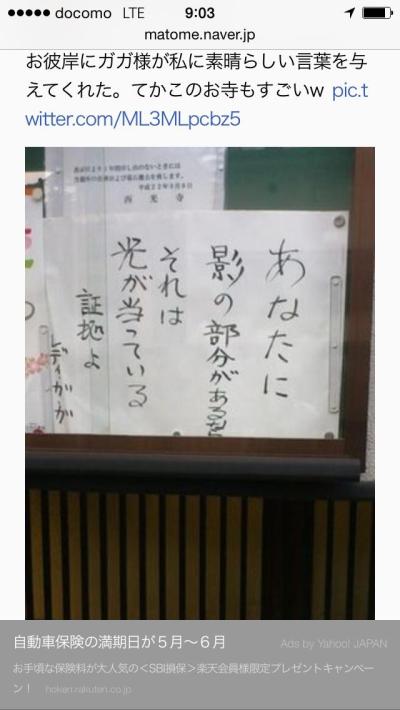 docomo LTE 9:03
matome.naver.jp
お彼岸にガガ様が私に素晴らしい言葉を与
えてくれた。てかこのお寺もすごいw pic.t
witter.com/ML3MLpcbz5
平成22年9月8日
西光寺
あなたに
影の部分がある
それは
光が当っている
証拠よ
レディ・ガガ
自動車保険の満期日が５月〜６月
Ads by Yahoo! JAPAN
お手頃な保険料が大人気の＜SBI損保＞楽天会員様限定プレゼントキャンペー
ン！ hoken.rakuten.co.jp